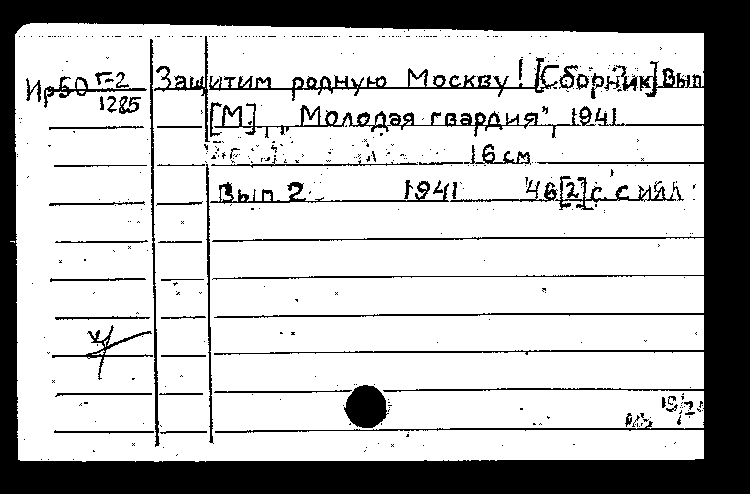 Ир50 Г-2
1285
Защитим родную Москву! [Сборник] Вып
[М], „Молодая гвардия", 1941
16 см
Вып 2 1941 46[2] с. с илл
19/